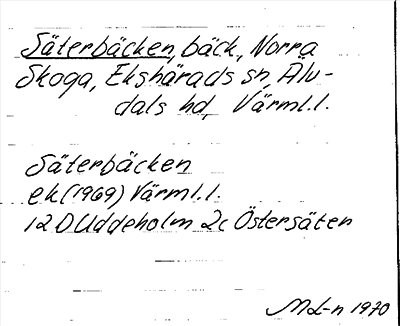 Säterbäcken, bäck, Norra
Skoga, Ekshärads sn, Älv-
dals hd, Värml.l.
Säterbäcken
ek (1969) Värml.l.
12 D Uddeholm 2c Östersäter
ML-n 1970